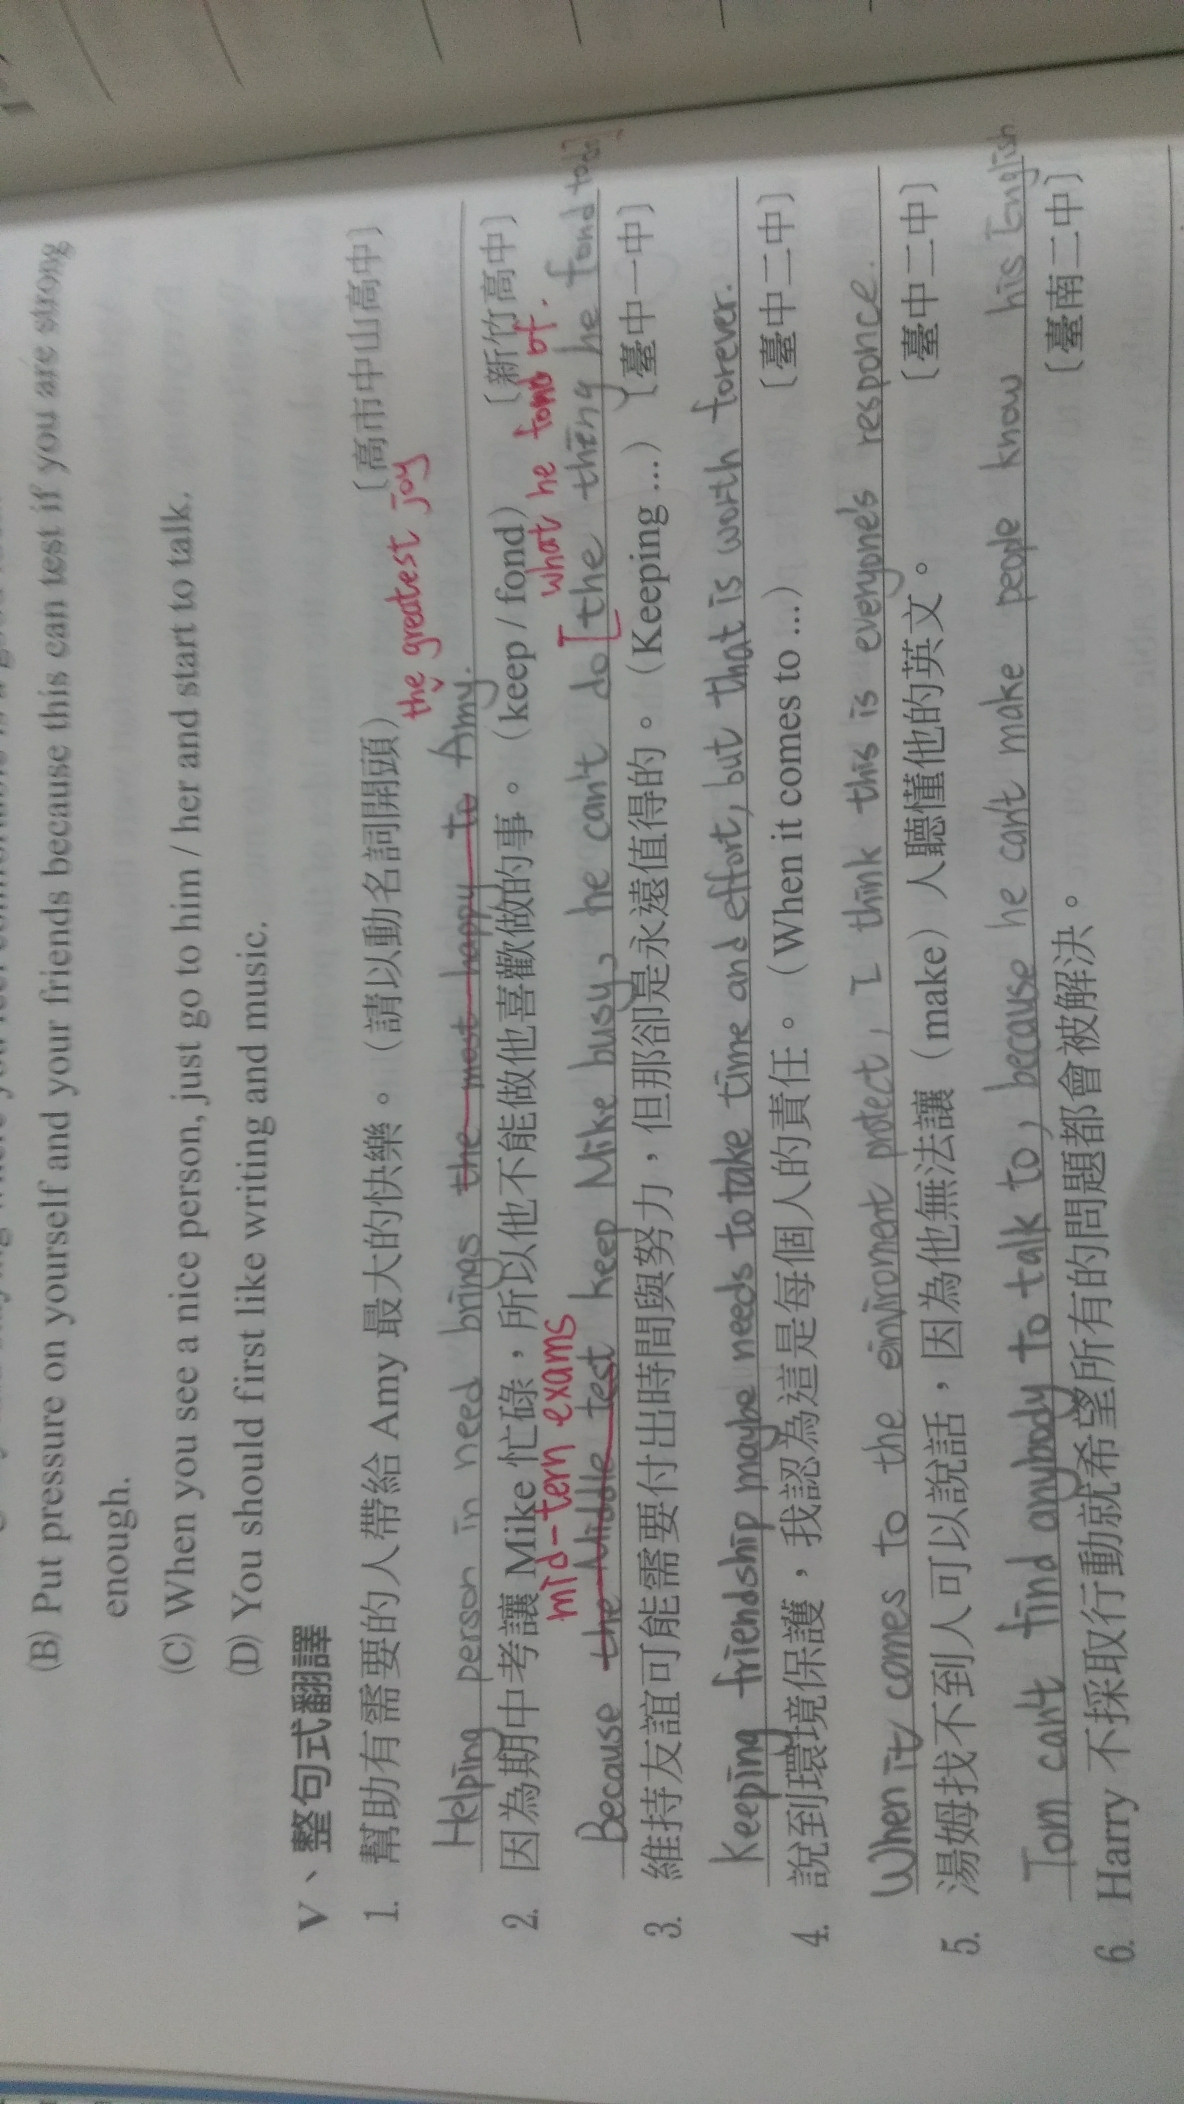 (B) Put pressure on yourself and your friends because this can test if you are strong
enough.
(C) When you see a nice person, just go to him / her and start to talk.
(D) You should first like writing and music.
V、整句式翻譯
1. 幫助有需要的人帶給 Amy 最大的快樂。（請以動名詞開頭）〔高市中山高中〕
the greatest joy
Helping person in need brings the most happy to Amy.
2. 因為期中考讓 Mike 忙碌，所以他不能做他喜歡做的事。（keep / fond）〔新竹高中〕
mid-tern exams what he fond of.
Because the Middle test keep Mike busy, he can't do [the thing he fond to do]
3. 維持友誼可能需要付出時間與努力，但那卻是永遠值得的。（Keeping ...）〔臺中一中〕
Keeping friendship maybe needs to take time and effort, but that is worth forever.
4. 說到環境保護，我認為這是每個人的責任。（When it comes to ...）〔臺中二中〕
When it comes to the enviroment protect, I think this is everyone's responce.
5. 湯姆找不到人可以說話，因為他無法讓（make）人聽懂他的英文。〔臺中二中〕
Tom can't find anybody to talk to, because he can't make people know his English
6. Harry 不採取行動就希望所有的問題都會被解決。〔臺南二中〕